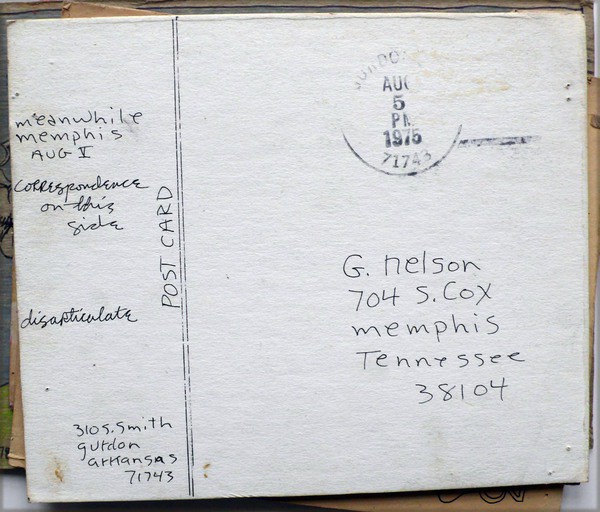 meanwhile
memphis
AUG V
correspondence
on this
side
disarticulate
310 S. Smith
gurdon
arkansas
71743
POST CARD
AUG
5
PM
1975
71743
G. nelson
704 S. Cox
memphis
Tennessee
38104